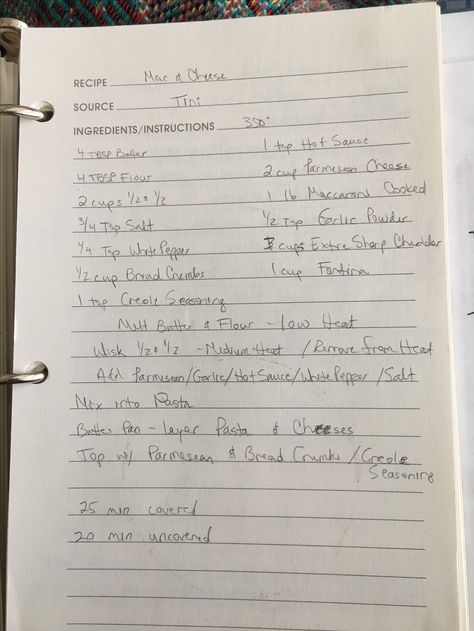 RECIPE Mac & Cheese
SOURCE Tini
INGREDIENTS/INSTRUCTIONS 350°
4 TBSP Butter
1 tsp Hot Sauce
4 TBSP Flour
2 cup Parmesean Cheese
2 cups 1/2 & 1/2
1 lb Maccaroni Cooked
3/4 Tsp Salt
1/2 Tsp Garlic Powder
1/4 Tsp White Pepper
cups Extra Sharp Cheddar
1/2 cup Bread Crumbs
1 cup Fontina
1 tsp Creole Seasoning
Melt Butter & Flour - Low Heat
Wisk 1/2 & 1/2 - Medium Heat / Remove from Heat
Add Parmesean/Garlic/Hot Sauce/White Pepper/Salt
Mix into Pasta
Butter Pan - layer Pasta & Cheeses
Top w/ Parmesean & Bread Crumbs / Creole
Seasoning
25 min covered
20 min uncovered